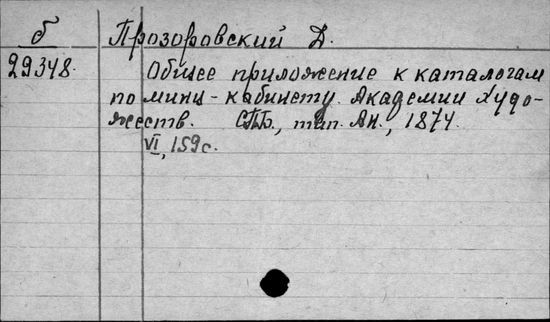 б
Прозоровский Д.
29348.
Общее приложение к каталогам
по минц-кабинету Академии Худо-
жеств. СПБ., тип. АН., 1874.
VI, 159 с.